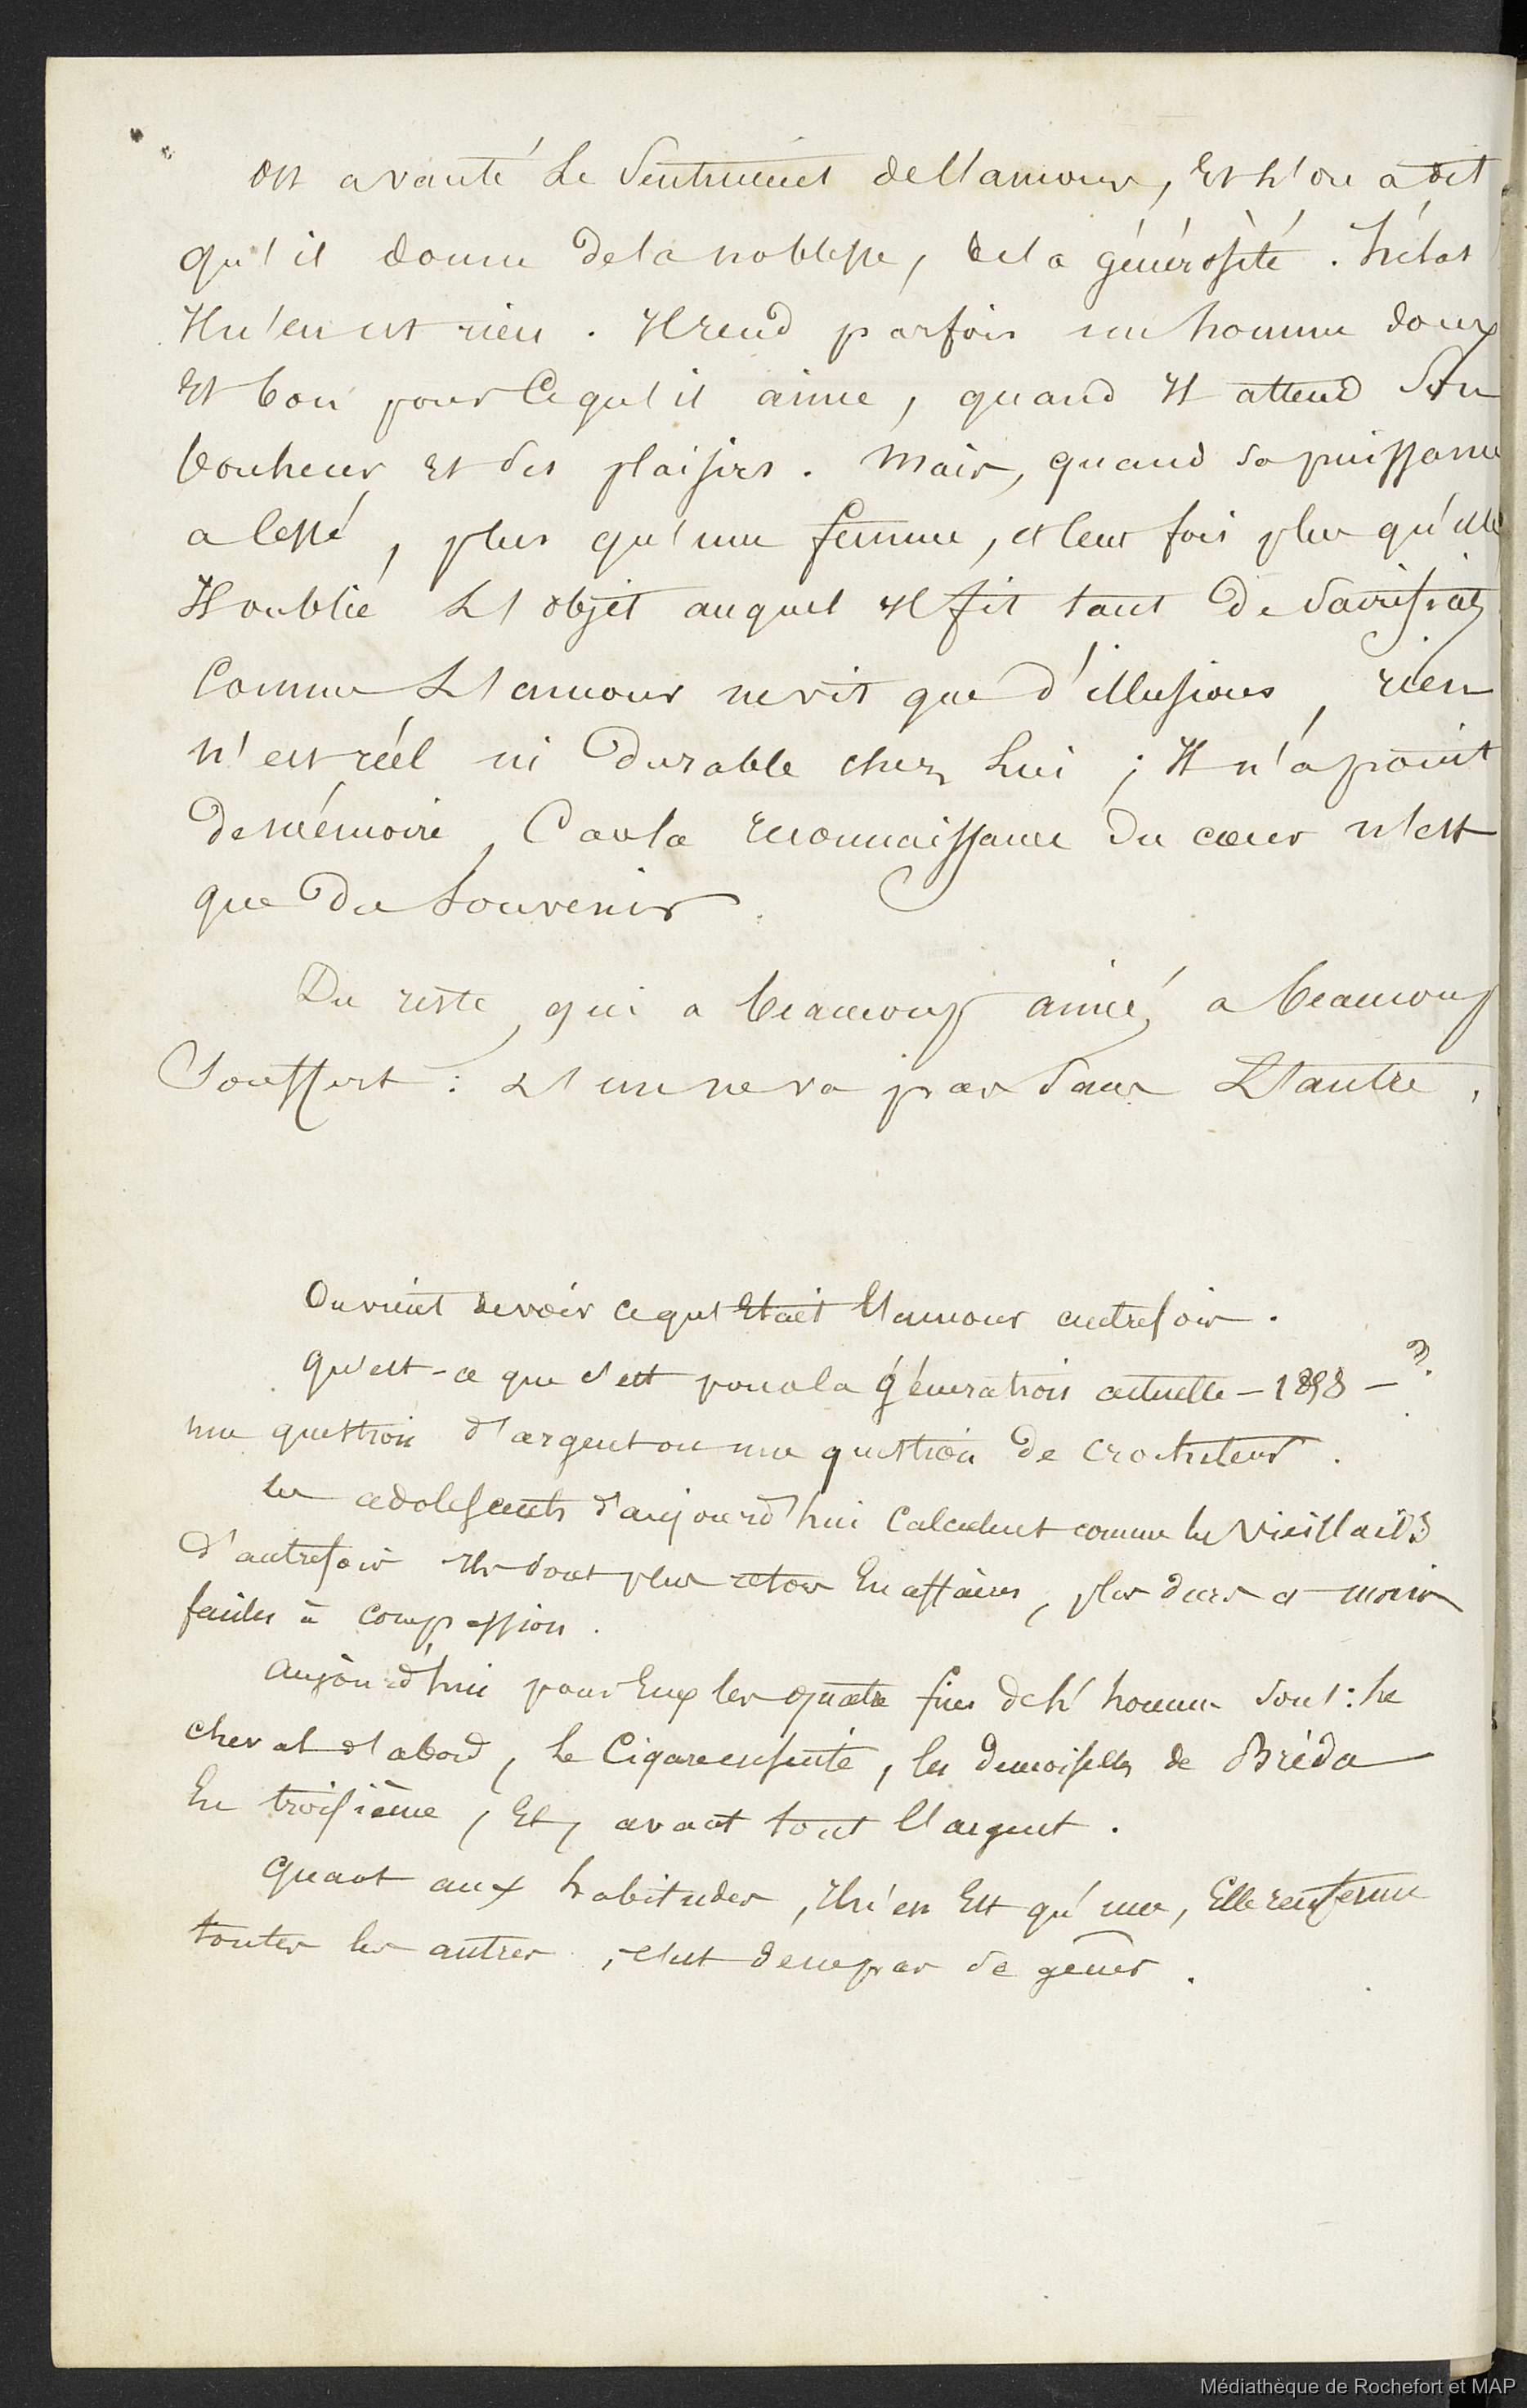 On a vanté Le Sentiment de l'amour, Et L'on a dit
qu'il donne de la noblesse, de la générosité. hélas
Il n'en est rien. Il rend parfois un homme doux
Et bon pour Ce qu'il aime, quand Il attend Son
bonheur Et des plaisirs. Mais, quand sa puissance
a Cessé, plus qu'une femme, et Cent fois plus qu'elle
Il oublie L'objet auquel Il fit tant De Sacrifices
Comme L'amour ne vit que d'illusions, rien
n'est réel ni Durable chez Lui ; Il n'a point
De mémoire, Car la reconnaissance Du cœur n'est
que Du Souvenir.
Du reste, qui a beaucoup aimé, a beaucoup
Souffert : L'un ne va pas Sans L'autre.
On vient de voir ce qu'Etait l'amour autrefois.
Qu'est-ce que c'est pour la génération actuelle – 1898 – ?
une question d'argent ou une question de crocheteur.
les adolescents d'aujourd'hui Calculent comme les vieillards
d'autrefois Ils sont plus retors En affaires, plus durs et moins
faciles à compassion.
Aujourd'hui pour Eux les quatre fins de L'homme sont : Le
cheval d'abord, Le Cigare ensuite, les demoiselles de Bréda
En troisième, Et, avant tout l'argent.
Quant aux habitudes, Il n'en Est qu'une, Elle renferme
toutes les autres, c'est de ne pas se gêner.
Médiathèque de Rochefort et MAP